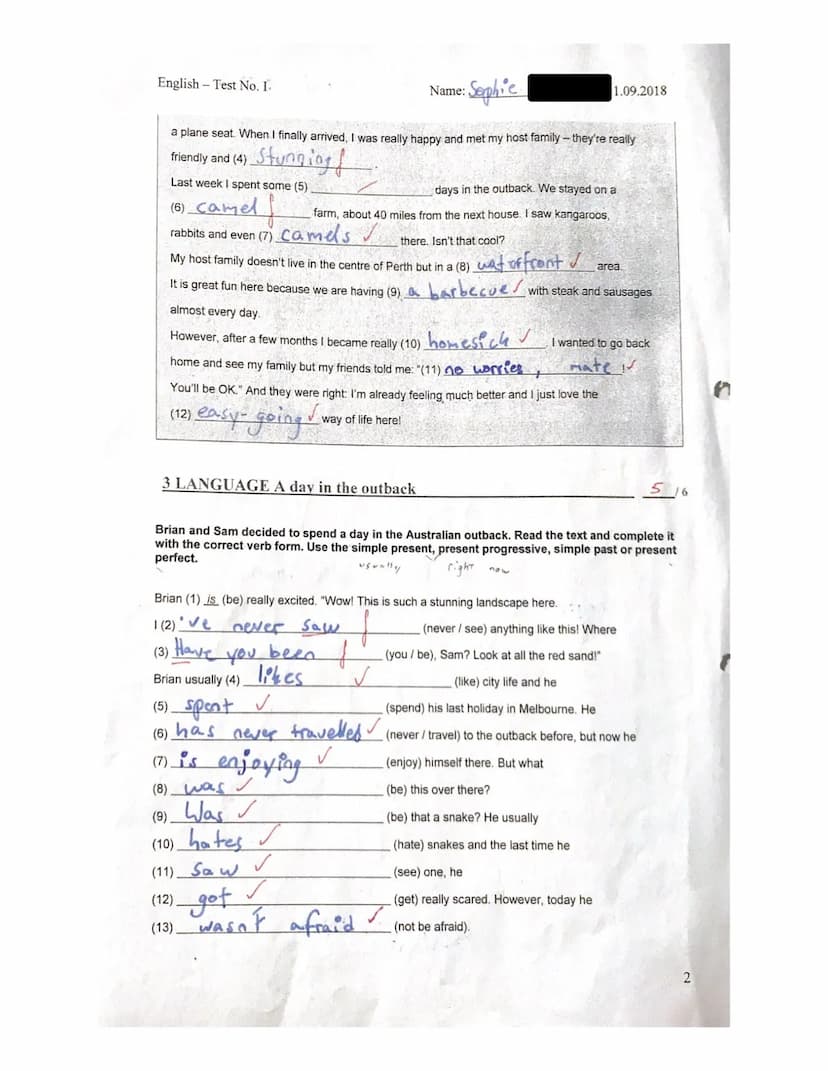 English – Test No. I.
Name: Sophie 1.09.2018
a plane seat. When I finally arrived, I was really happy and met my host family – they're really
friendly and (4) stunning
Last week I spent some (5) days in the outback. We stayed on a
(6) camel farm, about 40 miles from the next house. I saw kangaroos,
rabbits and even (7) camels there. Isn't that cool?
My host family doesn't live in the centre of Perth but in a (8) waterfront area.
It is great fun here because we are having (9) a barbecue with steak and sausages
almost every day.
However, after a few months I became really (10) homesick. I wanted to go back
home and see my family but my friends told me: "(11) no worries, mate!
You'll be OK." And they were right: I'm already feeling much better and I just love the
(12) easy-going way of life here!
3 LANGUAGE A day in the outback 5 /6
Brian and Sam decided to spend a day in the Australian outback. Read the text and complete it
with the correct verb form. Use the simple present, present progressive, simple past or present
perfect. usually right now
Brian (1) is (be) really excited. "Wow! This is such a stunning landscape here.
I (2) 've never saw (never / see) anything like this! Where
(3) Have you been (you / be), Sam? Look at all the red sand!"
Brian usually (4) likes (like) city life and he
(5) spent (spend) his last holiday in Melbourne. He
(6) has never travelled (never / travel) to the outback before, but now he
(7) is enjoying (enjoy) himself there. But what
(8) was (be) this over there?
(9) Was (be) that a snake? He usually
(10) hates (hate) snakes and the last time he
(11) saw (see) one, he
(12) got (get) really scared. However, today he
(13) wasn't afraid (not be afraid).
2